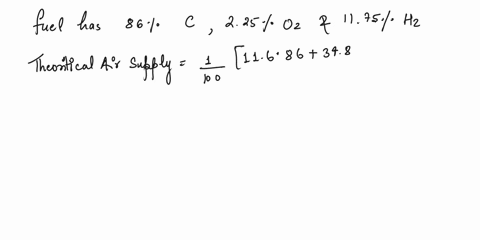 fuel has 86% C , 2.25% O2 & 11.75% H2
Theoritical Air Supply = 1/100 [11.6*86 + 34.8